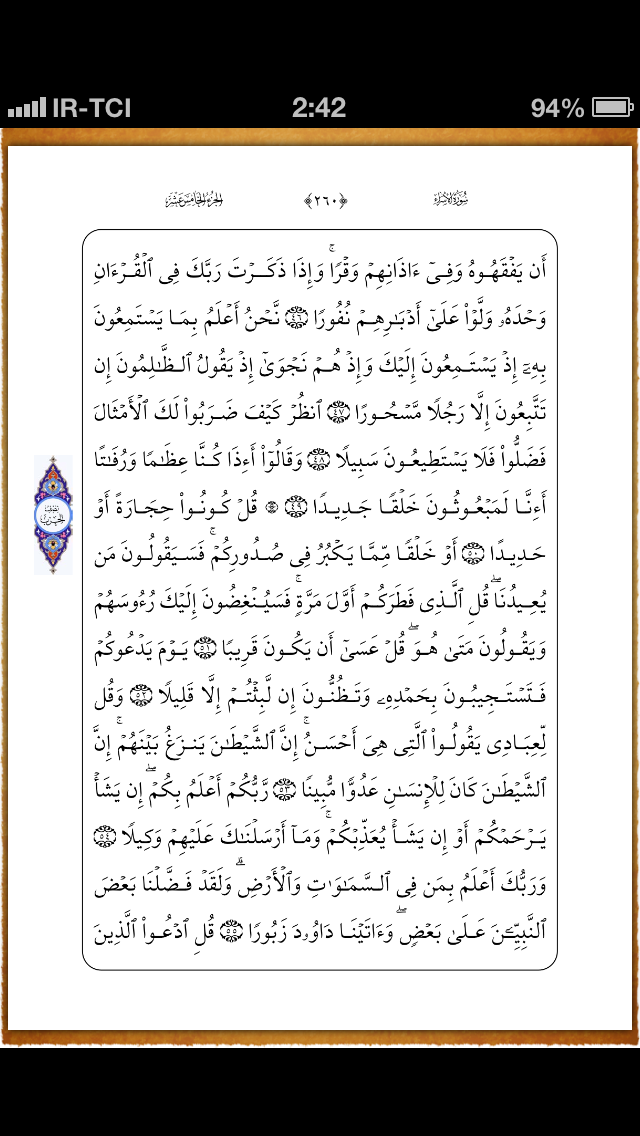 IR-TCI 2:42 94%
سُورَةُ الإِسْرَاءِ ﴿٢٦٠﴾ الجُزْءُ الخَامِسَ عَشَرَ
أَن يَفْقَهُوهُ وَفِىٓ ءَاذَانِهِمْ وَقْرًا ۚ وَإِذَا ذَكَرْتَ رَبَّكَ فِى ٱلْقُرْءَانِ
وَحْدَهُۥ وَلَّوْا۟ عَلَىٰٓ أَدْبَـٰرِهِمْ نُفُورًا ٤٦ نَّحْنُ أَعْلَمُ بِمَا يَسْتَمِعُونَ
بِهِۦٓ إِذْ يَسْتَمِعُونَ إِلَيْكَ وَإِذْ هُمْ نَجْوَىٰٓ إِذْ يَقُولُ ٱلظَّـٰلِمُونَ إِن
تَتَّبِعُونَ إِلَّا رَجُلًا مَّسْحُورًا ٤٧ ٱنظُرْ كَيْفَ ضَرَبُوا۟ لَكَ ٱلْأَمْثَالَ
فَضَلُّوا۟ فَلَا يَسْتَطِيعُونَ سَبِيلًا ٤٨ وَقَالُوٓا۟ أَءِذَا كُنَّا عِظَـٰمًا وَرُفَـٰتًا
أَءِنَّا لَمَبْعُوثُونَ خَلْقًا جَدِيدًا ٤٩ ۞ قُلْ كُونُوا۟ حِجَارَةً أَوْ
حَدِيدًا ٥٠ أَوْ خَلْقًا مِّمَّا يَكْبُرُ فِى صُدُورِكُمْ ۚ فَسَيَقُولُونَ مَن
يُعِيدُنَا ۖ قُلِ ٱلَّذِى فَطَرَكُمْ أَوَّلَ مَرَّةٍ ۚ فَسَيُنْغِضُونَ إِلَيْكَ رُءُوسَهُمْ
وَيَقُولُونَ مَتَىٰ هُوَ ۖ قُلْ عَسَىٰٓ أَن يَكُونَ قَرِيبًا ٥١ يَوْمَ يَدْعُوكُمْ
فَتَسْتَجِيبُونَ بِحَمْدِهِۦ وَتَظُنُّونَ إِن لَّبِثْتُمْ إِلَّا قَلِيلًا ٥٢ وَقُل
لِّعِبَادِى يَقُولُوا۟ ٱلَّتِى هِىَ أَحْسَنُ ۚ إِنَّ ٱلشَّيْطَـٰنَ يَنزَغُ بَيْنَهُمْ ۚ إِنَّ
ٱلشَّيْطَـٰنَ كَانَ لِلْإِنسَـٰنِ عَدُوًّا مُّبِينًا ٥٣ رَّبُّكُمْ أَعْلَمُ بِكُمْ ۖ إِن يَشَأْ
يَرْحَمْكُمْ أَوْ إِن يَشَأْ يُعَذِّبْكُمْ ۚ وَمَآ أَرْسَلْنَـٰكَ عَلَيْهِمْ وَكِيلًا ٥٤
وَرَبُّكَ أَعْلَمُ بِمَن فِى ٱلسَّمَـٰوَٰتِ وَٱلْأَرْضِ ۗ وَلَقَدْ فَضَّلْنَا بَعْضَ
ٱلنَّبِيِّـۧنَ عَلَىٰ بَعْضٍ ۖ وَءَاتَيْنَا دَاوُۥدَ زَبُورًا ٥٥ قُلِ ٱدْعُوا۟ ٱلَّذِينَ
نصف
الحزب